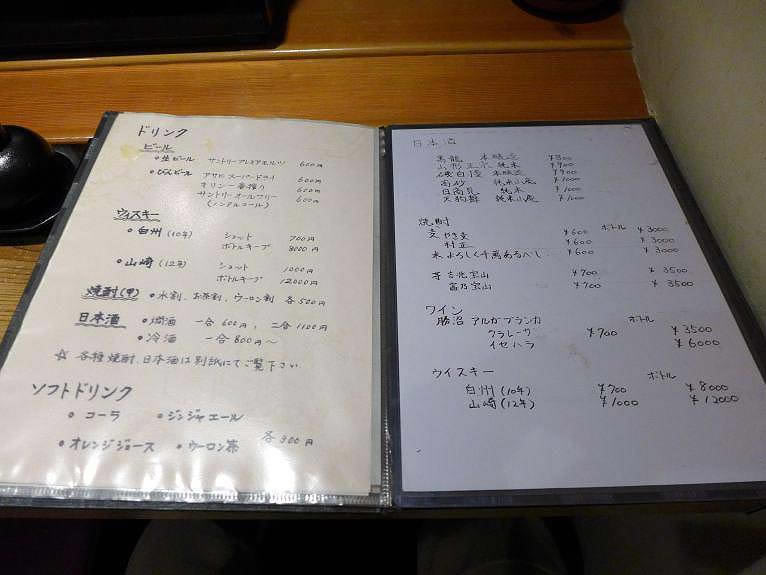 ドリンク
ビール
• 生ビール サントリープレミアムモルツ 600円
• びんビール アサヒ スーパードライ 600円
キリン一番搾り 600円
サントリーオールフリー 600円
(ノンアルコール)
ウィスキー
• 白州(10年) ショット 700円
ボトルキープ 8000円
• 山崎(12年) ショット 1000円
ボトルキープ 12000円
焼酎(甲) • 水割、お茶割、ウーロン割 各500円
日本酒 • 燗酒 一合600円、二合1100円
• 冷酒 一合800円〜
☆ 各種焼酎、日本酒は別紙にてご覧下さい
ソフトドリンク
• コーラ • ジンジャエール
• オレンジジュース • ウーロン茶 各300円
日本酒
黒龍 本醸造 ¥800
山形正宗 純米 ¥900
磯自慢 本醸造 ¥900
高砂 純米山廃 ¥1000
日高見 純米 ¥1000
天狗舞 純米山廃 ¥1000
焼酎 ボトル
麦 やき麦 ¥600 ¥3000
村正 ¥600 ¥3000
米 よろしく千萬あるべし ¥600 ¥3000
芋 吉兆宝山 ¥700 ¥3500
富乃宝山 ¥700 ¥3500
ワイン ボトル
勝沼 アルガブランカ
クラレーザ ¥700 ¥3500
イセハラ ¥6000
ウイスキー ボトル
白州(10年) ¥700 ¥8000
山崎(12年) ¥1000 ¥12000